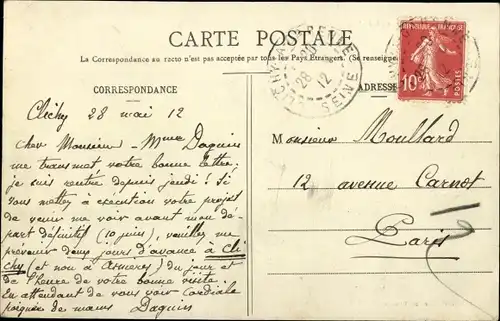 CARTE POSTALE
La Correspondance au recto n'est pas acceptée par tous les Pays Étrangers. (Se renseigner
CORRESPONDANCE
ADRESSE
RÉPUBLIQUE FRANÇAISE
10
POSTES
CLICHY-LA-
SEINE
28
12
Clichy 28 mai 12
Cher Monsieur - Mme Daguin
me transmet votre bonne lettre.
je suis rentré depuis jeudi ! Si
vous mettez à exécution votre projet
de venir me voir avant mon dé-
part définitif (10 juin), veuillez me
prévenir deux jours d'avance à Cli
chy (et non à Asnières) du jour et
de l'heure de votre bonne visite.
En attendant de vous voir cordiale
poignée de mains Daguin
Monsieur Moullard
12 avenue Carnot
Paris